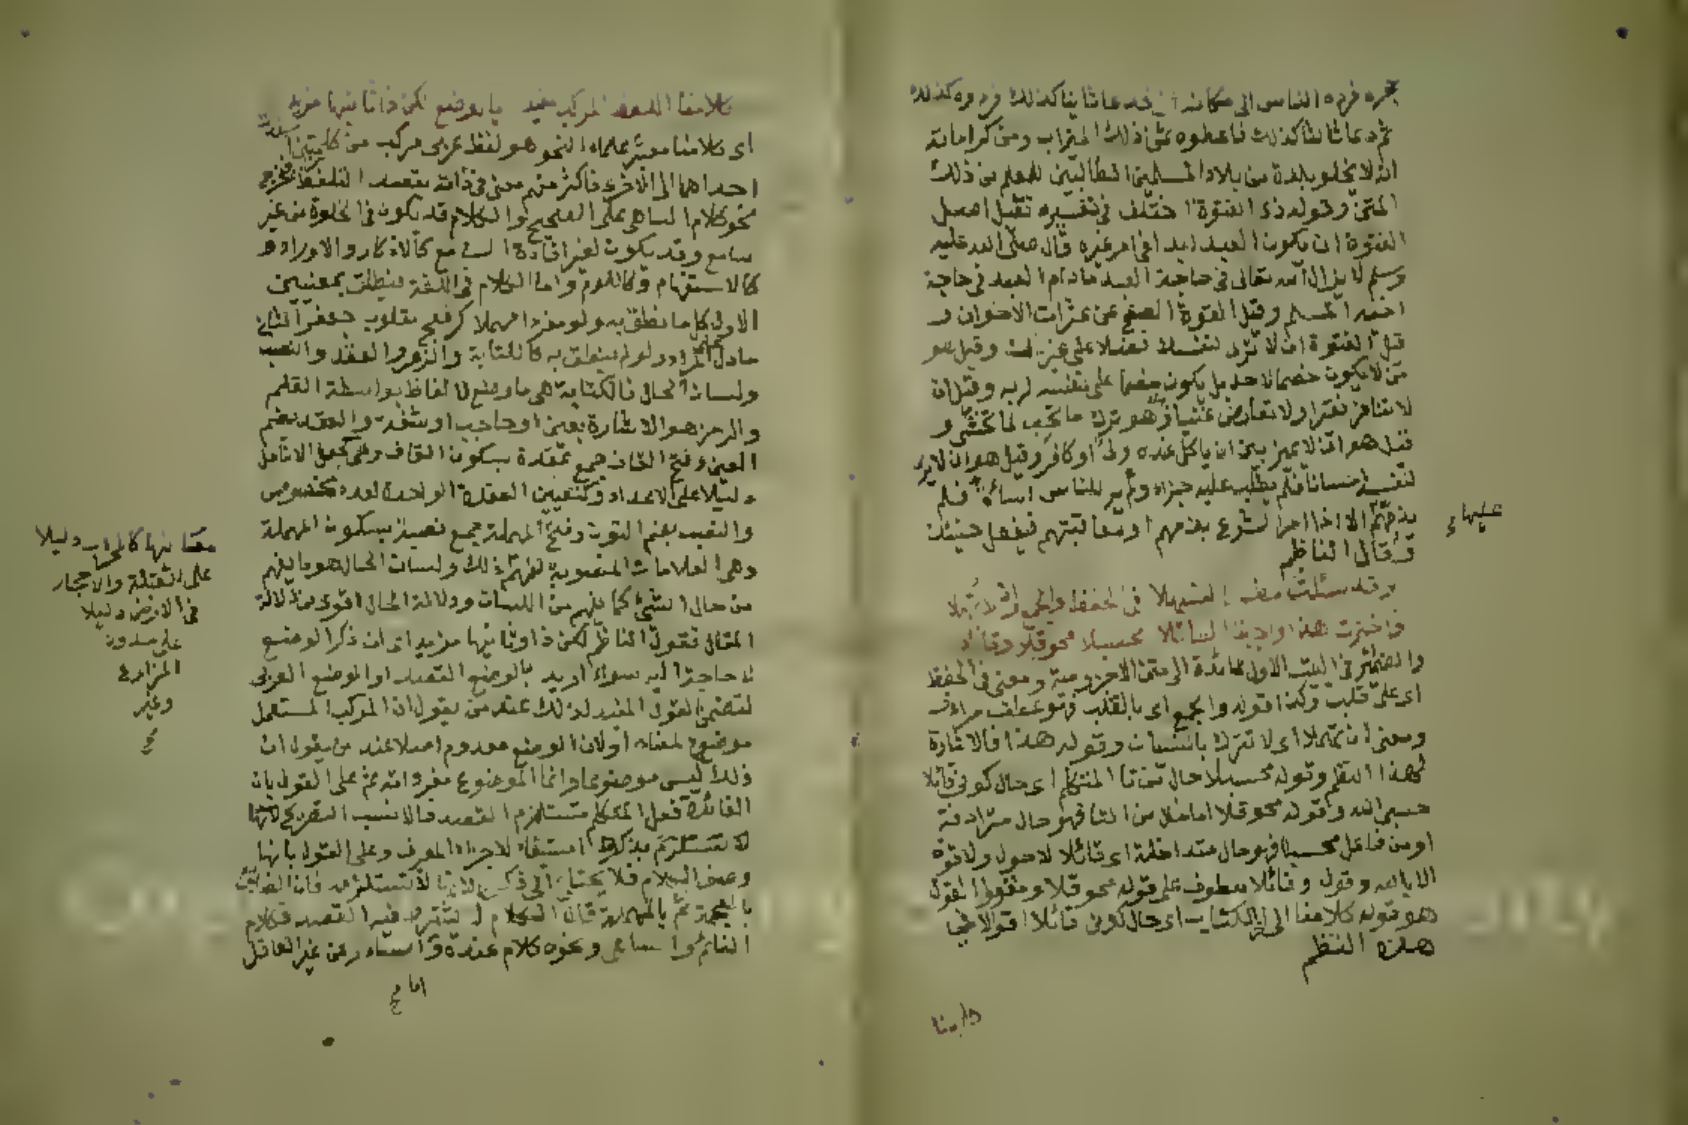 فرده الناس الى مكانه ثم عاد ثانيا كذلك فردوه كذلك
ثم عاد ثالثا كذلك فاعطوه ذلك الميزاب ومن كراماته
انه لا يخلو بلدة من بلاد المسلمين الطالبين للعلم من ذلك
المتن وقوله ذى الفتوة اختلف في تفسيره فقيل اصل
الفتوة ان يكون العبد ابدا في امر غيره قال صلى الله عليه
وسلم لا يزال الله تعالى في حاجة العبد مادام العبد في حاجة
اخيه المسلم وقيل الفتوة الصفح عن عثرات الاخوان و
قيل الفتوة ان لا ترى لنفسك فضلا على غيرك وقيل هو
من لا يكون خصما لاحد بل يكون خصما على نفسه لربه وقيل ان
لا تنافر فقيرا ولا تعارض غنيا وقيل هو ترك ما تحب لما تخشى و
قيل هو ان لا يميز بين ان ياكل عنده ولى او كافر وقيل هو ان لا يرى
لنفسه احسانا فلم يطلب عليه جزاء ولم ير للناس اساءة فلم
يذمهم الا اذا امر الشرع بذمهم او معاقبتهم فيفعل حينئذ
وقال الناظم
عليها
وقد سئلت منه التسهيلا في الحفظ والجمع ان لا يهملا
فاخترت هذا واجبنا السائلا محسبلا محوقلا وقائلا
والضمائر في البيت الاول عائدة الى متن الاجرومية ومعنى في الحفظ
اى على قلبه وكذا قوله والجمع اى بالقلب فهو عطف مرادف
ومعنى ان يهملا اى لا تترك بالنسيان وقوله هذا فالاشارة
لهذا النظم وقوله محسبلا حال من تا المتكلم اى حال كونى قائلا
حسبى الله وقوله محوقلا اما حال من التا فهو حال مترادفة
او من فاعل محسبلا فهو حال متداخلة اى قائلا لا حول ولا قوة
الا بالله وقول وقائلا معطوف على قوله محوقلا ومقول القول
هو قوله كلامنا الى اخر الكتاب اى حال كونى قائلا اقوالا في
هذه النظم
كلامنا اللفظ المركب مفيد بالوضع لكن ذا ثانيها مزيد
اى كلامنا معشر علماء النحو هو لفظ عربى مركب من كلمتين اسندت
احداهما الى الاخرى فاكثر منهم معنى في ذاته بقصد التلفظ فخرج
نحو كلام الساهى على الصحيح والكلام قد يكون في الخلوة من غير
سامع وقد يكون لغير افادة السامع كالاذكار والاوراد و
كالاستفهام وكاللوم واما الكلام في اللغة فيطلق بمعنيين
الاول كل ما نطق به ولو مفردا مهملا كرفعج مقلوب جعفر الثانى
ما دل على المراد ولو لم ينطق به كالكتابة والرمز والعقد والنصب
ولسان الحال فالكتابة هى ما وضع لالفاظ بواسطة القلم
والرمز هو الاشارة بعين او حاجب او شفة والعقد بضم
العين وفتح القاف جمع عقدة بسكون القاف وهى تجعل الانامل
دليلا على الاعداد وكتعيين العقدة الواحدة لعدد مخصوص
والنصب بضم النون وفتح المهملة جمع نصبة بسكون المهملة
وهى العلامات المنصوبة لفهم ذلك ولسان الحال هو ما يفهم
من حال الشئ كما يفهم من اللسان ودلالة الحال اقوى من دلالة
المقال فقول الناظم لكن ذا ثانيها مزيد اى ان ذكر الوضع
لا حاجة اليه سواء اريد بالوضع القصد او الوضع العربى
لتضمن القول المفيد لذلك عند من يقول ان المركب المستعمل
موضوع لمعناه اولان الوضع معدوم اصلا عند من يقول ان
ذلك ليس موضوعا وانما الموضوع مفرداته ثم على القول بان
الفائدة فعل المتكلم تستلزم القصد فالانسب التصريح لانها
لا تستلزم بذكره استيفاء لاجزاء المعرف وعلى القول بانها
وصف الكلام فلا يحتاج الى ذكره لانها لا تستلزمه فان
بالمعجمة ثم بالمهملة فان الكلام لا يشترط فيه القصد فكلام
النائم والساهى ونحوه كلام عنده
اما
معانيها كالمحراب دليلا
على القبلة والاحجار
في الارض دليلا
على حدود
المزارع
وغير
صح